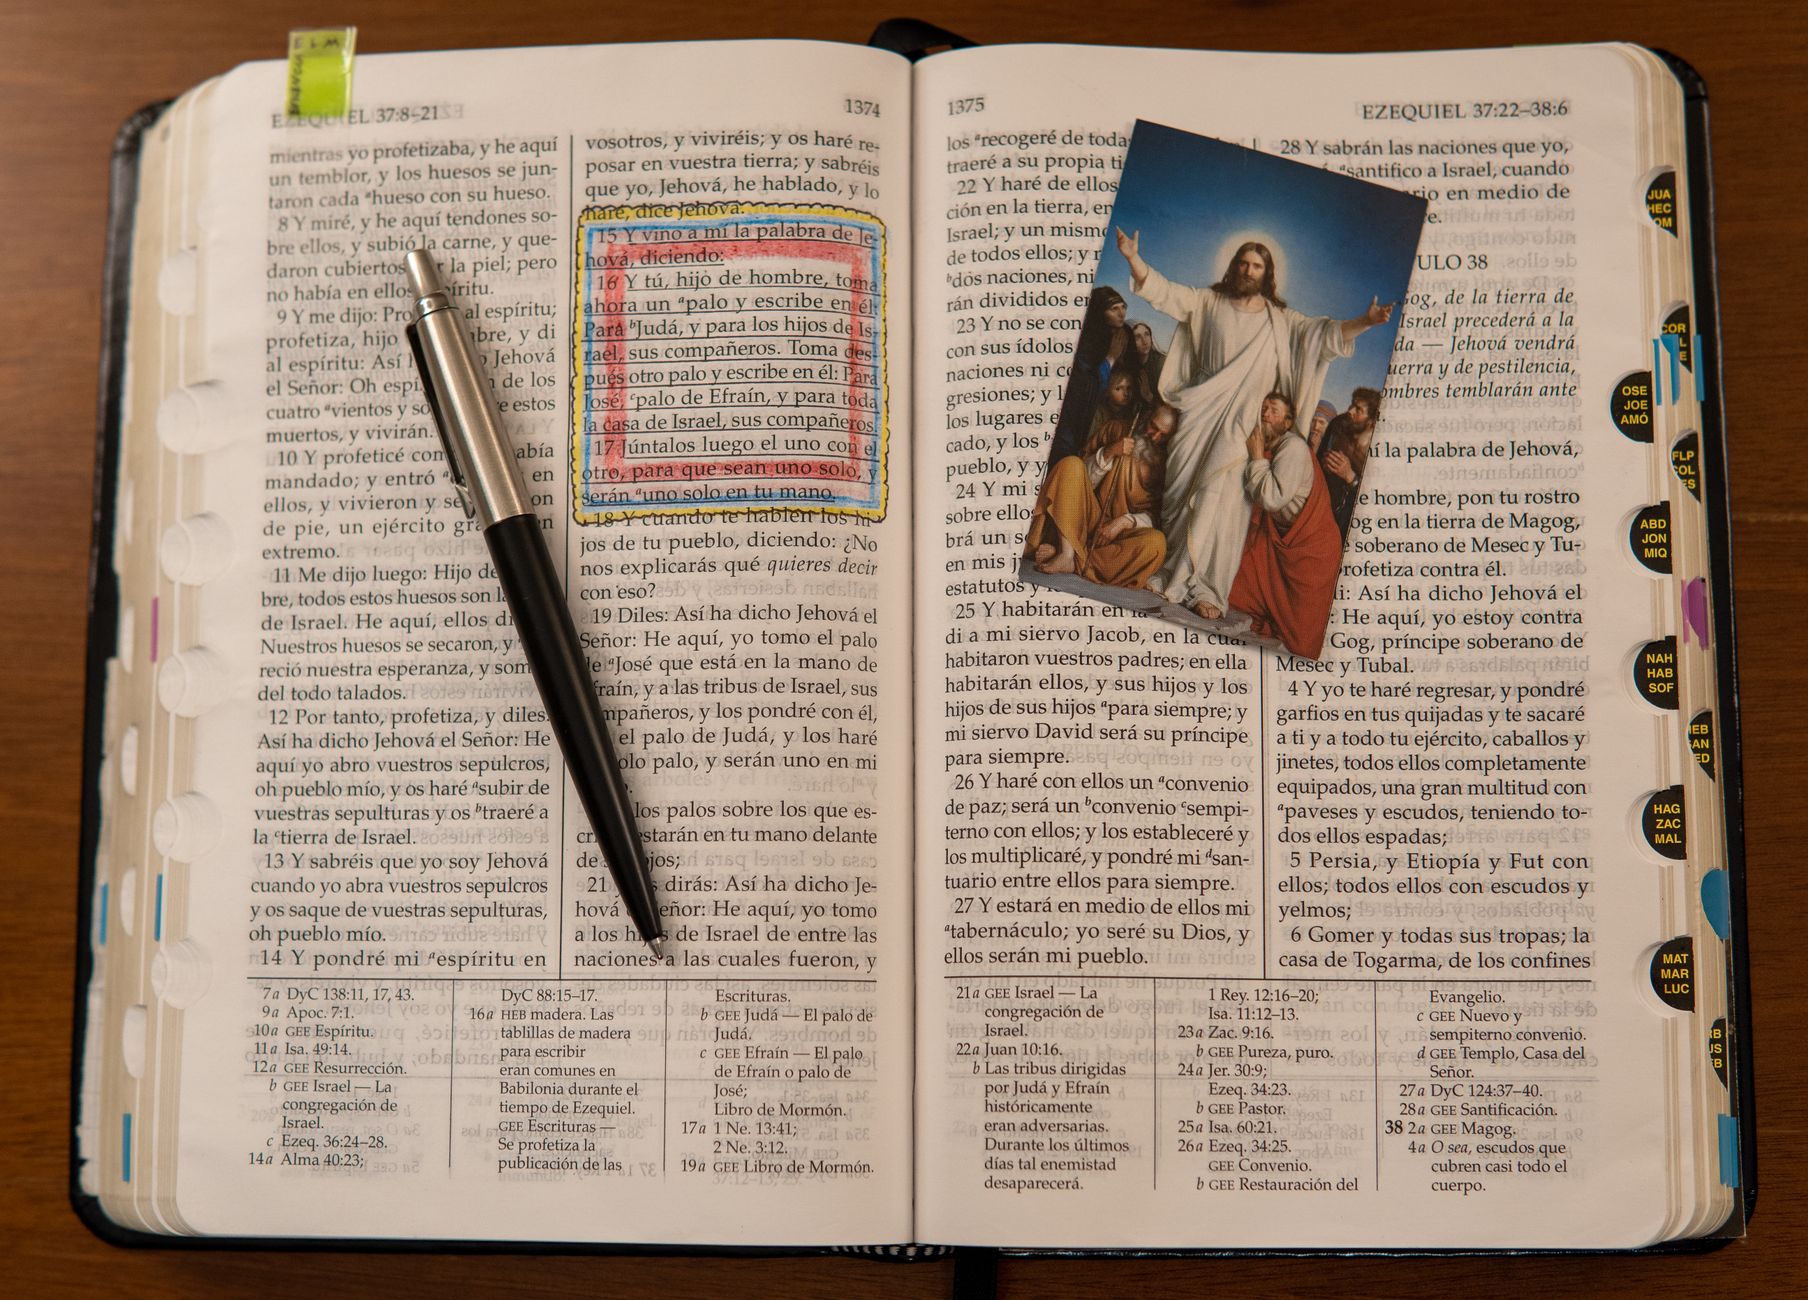 EZEQUIEL 37:8–21
1374
mientras yo profetizaba, y he aquí
un temblor, y los huesos se jun-
taron cada ᵃhueso con su hueso.
8 Y miré, y he aquí tendones so-
bre ellos, y subió la carne, y que-
daron cubiertos la piel; pero
no había en ellos
9 Y me dijo: al espíritu;
profetiza, hijo y di
al espíritu: Así Jehová
el Señor: Oh de los
cuatro ᵃvientos y estos
muertos, y vivirán.
10 Y profeticé
mandado; y entró en
ellos, y vivieron y
de pie, un ejército
extremo.
11 Me dijo luego: Hijo
bre, todos estos huesos son
de Israel. He aquí, ellos
Nuestros huesos se secaron, y
reció nuestra esperanza, y
del todo talados.
12 Por tanto, profetiza, y diles:
Así ha dicho Jehová el Señor: He
aquí yo abro vuestros sepulcros,
oh pueblo mío, y os haré ᵃsubir de
vuestras sepulturas y os ᵇtraeré a
la ᶜtierra de Israel.
13 Y sabréis que yo soy Jehová
cuando yo abra vuestros sepulcros
y os saque de vuestras sepulturas,
oh pueblo mío.
14 Y pondré mi ᵃespíritu en
vosotros, y viviréis; y os haré re-
posar en vuestra tierra; y sabréis
que yo, Jehová, he hablado, y lo
haré, dice Jehová.
15 Y vino a mí la palabra de Je-
hová, diciendo:
16 Y tú, hijo de hombre, toma
ahora un ᵃpalo y escribe en él:
Para ᵇJudá, y para los hijos de Is-
rael, sus compañeros. Toma des-
pués otro palo y escribe en él: Para
José, ᶜpalo de Efraín, y para toda
la casa de Israel, sus compañeros.
17 Júntalos luego el uno con el
otro, para que sean uno solo, y
serán ᵃuno solo en tu mano.
18 Y cuando te hablen los hi-
jos de tu pueblo, diciendo: ¿No
nos explicarás qué quieres decir
con eso?
19 Diles: Así ha dicho Jehová el
Señor: He aquí, yo tomo el palo
de ᵃJosé que está en la mano de
Efraín, y a las tribus de Israel, sus
compañeros, y los pondré con él,
el palo de Judá, y los haré
solo palo, y serán uno en mi
los palos sobre los que es-
estarán en tu mano delante
de ojos;
21 dirás: Así ha dicho Je-
hová Señor: He aquí, yo tomo
a los hijos de Israel de entre las
naciones a las cuales fueron, y
7a DyC 138:11, 17, 43.
9a Apoc. 7:1.
10a GEE Espíritu.
11a Isa. 49:14.
12a GEE Resurrección.
b GEE Israel — La
congregación de
Israel.
c Ezeq. 36:24–28.
14a Alma 40:23;
DyC 88:15–17.
16a HEB madera. Las
tablillas de madera
para escribir
eran comunes en
Babilonia durante el
tiempo de Ezequiel.
GEE Escrituras —
Se profetiza la
publicación de las
Escrituras.
b GEE Judá — El palo de
Judá.
c GEE Efraín — El palo
de Efraín o palo de
José;
Libro de Mormón.
17a 1 Ne. 13:41;
2 Ne. 3:12.
19a GEE Libro de Mormón.
1375
EZEQUIEL 37:22–38:6
los ᵃrecogeré de
traeré a su propia
22 Y haré de ellos
ción en la tierra, en
Israel; y un mismo
de todos ellos; y
ᵇdos naciones, ni
rán divididos
23 Y no se
con sus ídolos
naciones ni
gresiones; y
los lugares
cado, y los
pueblo, y
24 Y mi
sobre ellos
brá un
en mis
estatutos y
25 Y habitarán en la
di a mi siervo Jacob, en la cual
habitaron vuestros padres; en ella
habitarán ellos, y sus hijos y los
hijos de sus hijos ᵃpara siempre; y
mi siervo David será su príncipe
para siempre.
26 Y haré con ellos un ᵃconvenio
de paz; será un ᵇconvenio ᶜsempi-
terno con ellos; y los estableceré y
los multiplicaré, y pondré mi ᵈsan-
tuario entre ellos para siempre.
27 Y estará en medio de ellos mi
ᵃtabernáculo; yo seré su Dios, y
ellos serán mi pueblo.
28 Y sabrán las naciones que yo,
ᵃsantifico a Israel, cuando
en medio de
38
de la tierra de
Israel precederá a la
— Jehová vendrá
y de pestilencia,
temblarán ante
la palabra de Jehová,
de hombre, pon tu rostro
en la tierra de Magog,
soberano de Mesec y Tu-
profetiza contra él.
Así ha dicho Jehová el
He aquí, yo estoy contra
Gog, príncipe soberano de
Mesec y Tubal.
4 Y yo te haré regresar, y pondré
garfios en tus quijadas y te sacaré
a ti y a todo tu ejército, caballos y
jinetes, todos ellos completamente
equipados, una gran multitud con
ᵃpaveses y escudos, teniendo to-
dos ellos espadas;
5 Persia, y Etiopía y Fut con
ellos; todos ellos con escudos y
yelmos;
6 Gomer y todas sus tropas; la
casa de Togarma, de los confines
21a GEE Israel — La
congregación de
Israel.
22a Juan 10:16.
b Las tribus dirigidas
por Judá y Efraín
históricamente
eran adversarias.
Durante los últimos
días tal enemistad
desaparecerá.
1 Rey. 12:16–20;
Isa. 11:12–13.
23a Zac. 9:16.
b GEE Pureza, puro.
24a Jer. 30:9;
Ezeq. 34:23.
b GEE Pastor.
25a Isa. 60:21.
26a Ezeq. 34:25.
GEE Convenio.
b GEE Restauración del
Evangelio.
c GEE Nuevo y
sempiterno convenio.
d GEE Templo, Casa del
Señor.
27a DyC 124:37–40.
28a GEE Santificación.
38 2a GEE Magog.
4a O sea, escudos que
cubren casi todo el
cuerpo.
JUA
HEC
COR
OSE
JOE
AMÓ
FLP
COL
ABD
JON
MIQ
NAH
HAB
SOF
HEB
HAG
ZAC
MAL
MAT
MAR
LUC